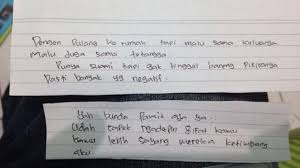 Pengen Pulang ke rumah tapi malu sama keluarga
malu juga sama tetangga
Punya suami tapi gak tinggal bareng Pikiranya
Pasti banyak yg negatif.
Yah bunda Pamit aja ya
Udah capek ngadepin sifat kamu
kamu lebih sayang mereka ketimbang
aku.